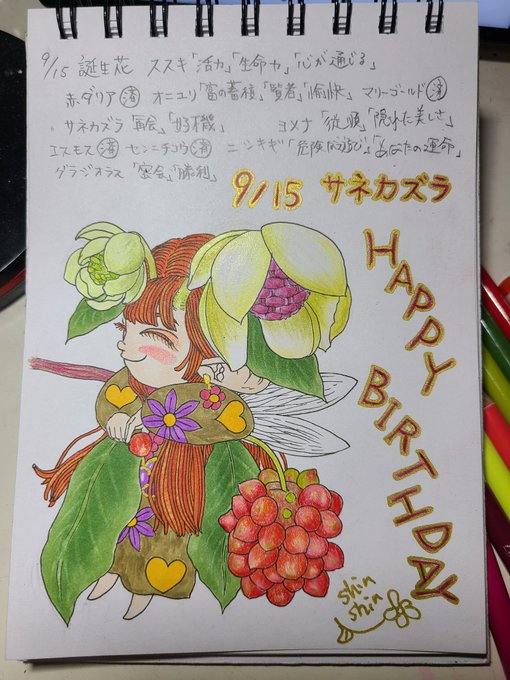 9/15 誕生花 ススキ「活力」「生命力」「心が通じる」
赤ダリア㊡ オニユリ「富の蓄積」「賢者」「愉快」 マリーゴールド㊡
サネカズラ「再会」「好機」 ヨメナ「従順」「隠れた美しさ」
エスモス㊡ センニチコウ㊡ ニシキギ「危険な遊び」「あなたの運命」
グラジオラス「密会」「勝利」
9/15 サネカズラ
HAPPY
BIRTHDAY
shin
shin